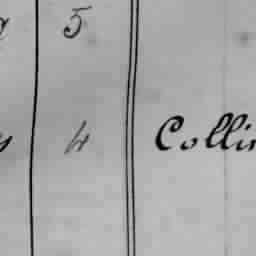 5
4 Collin